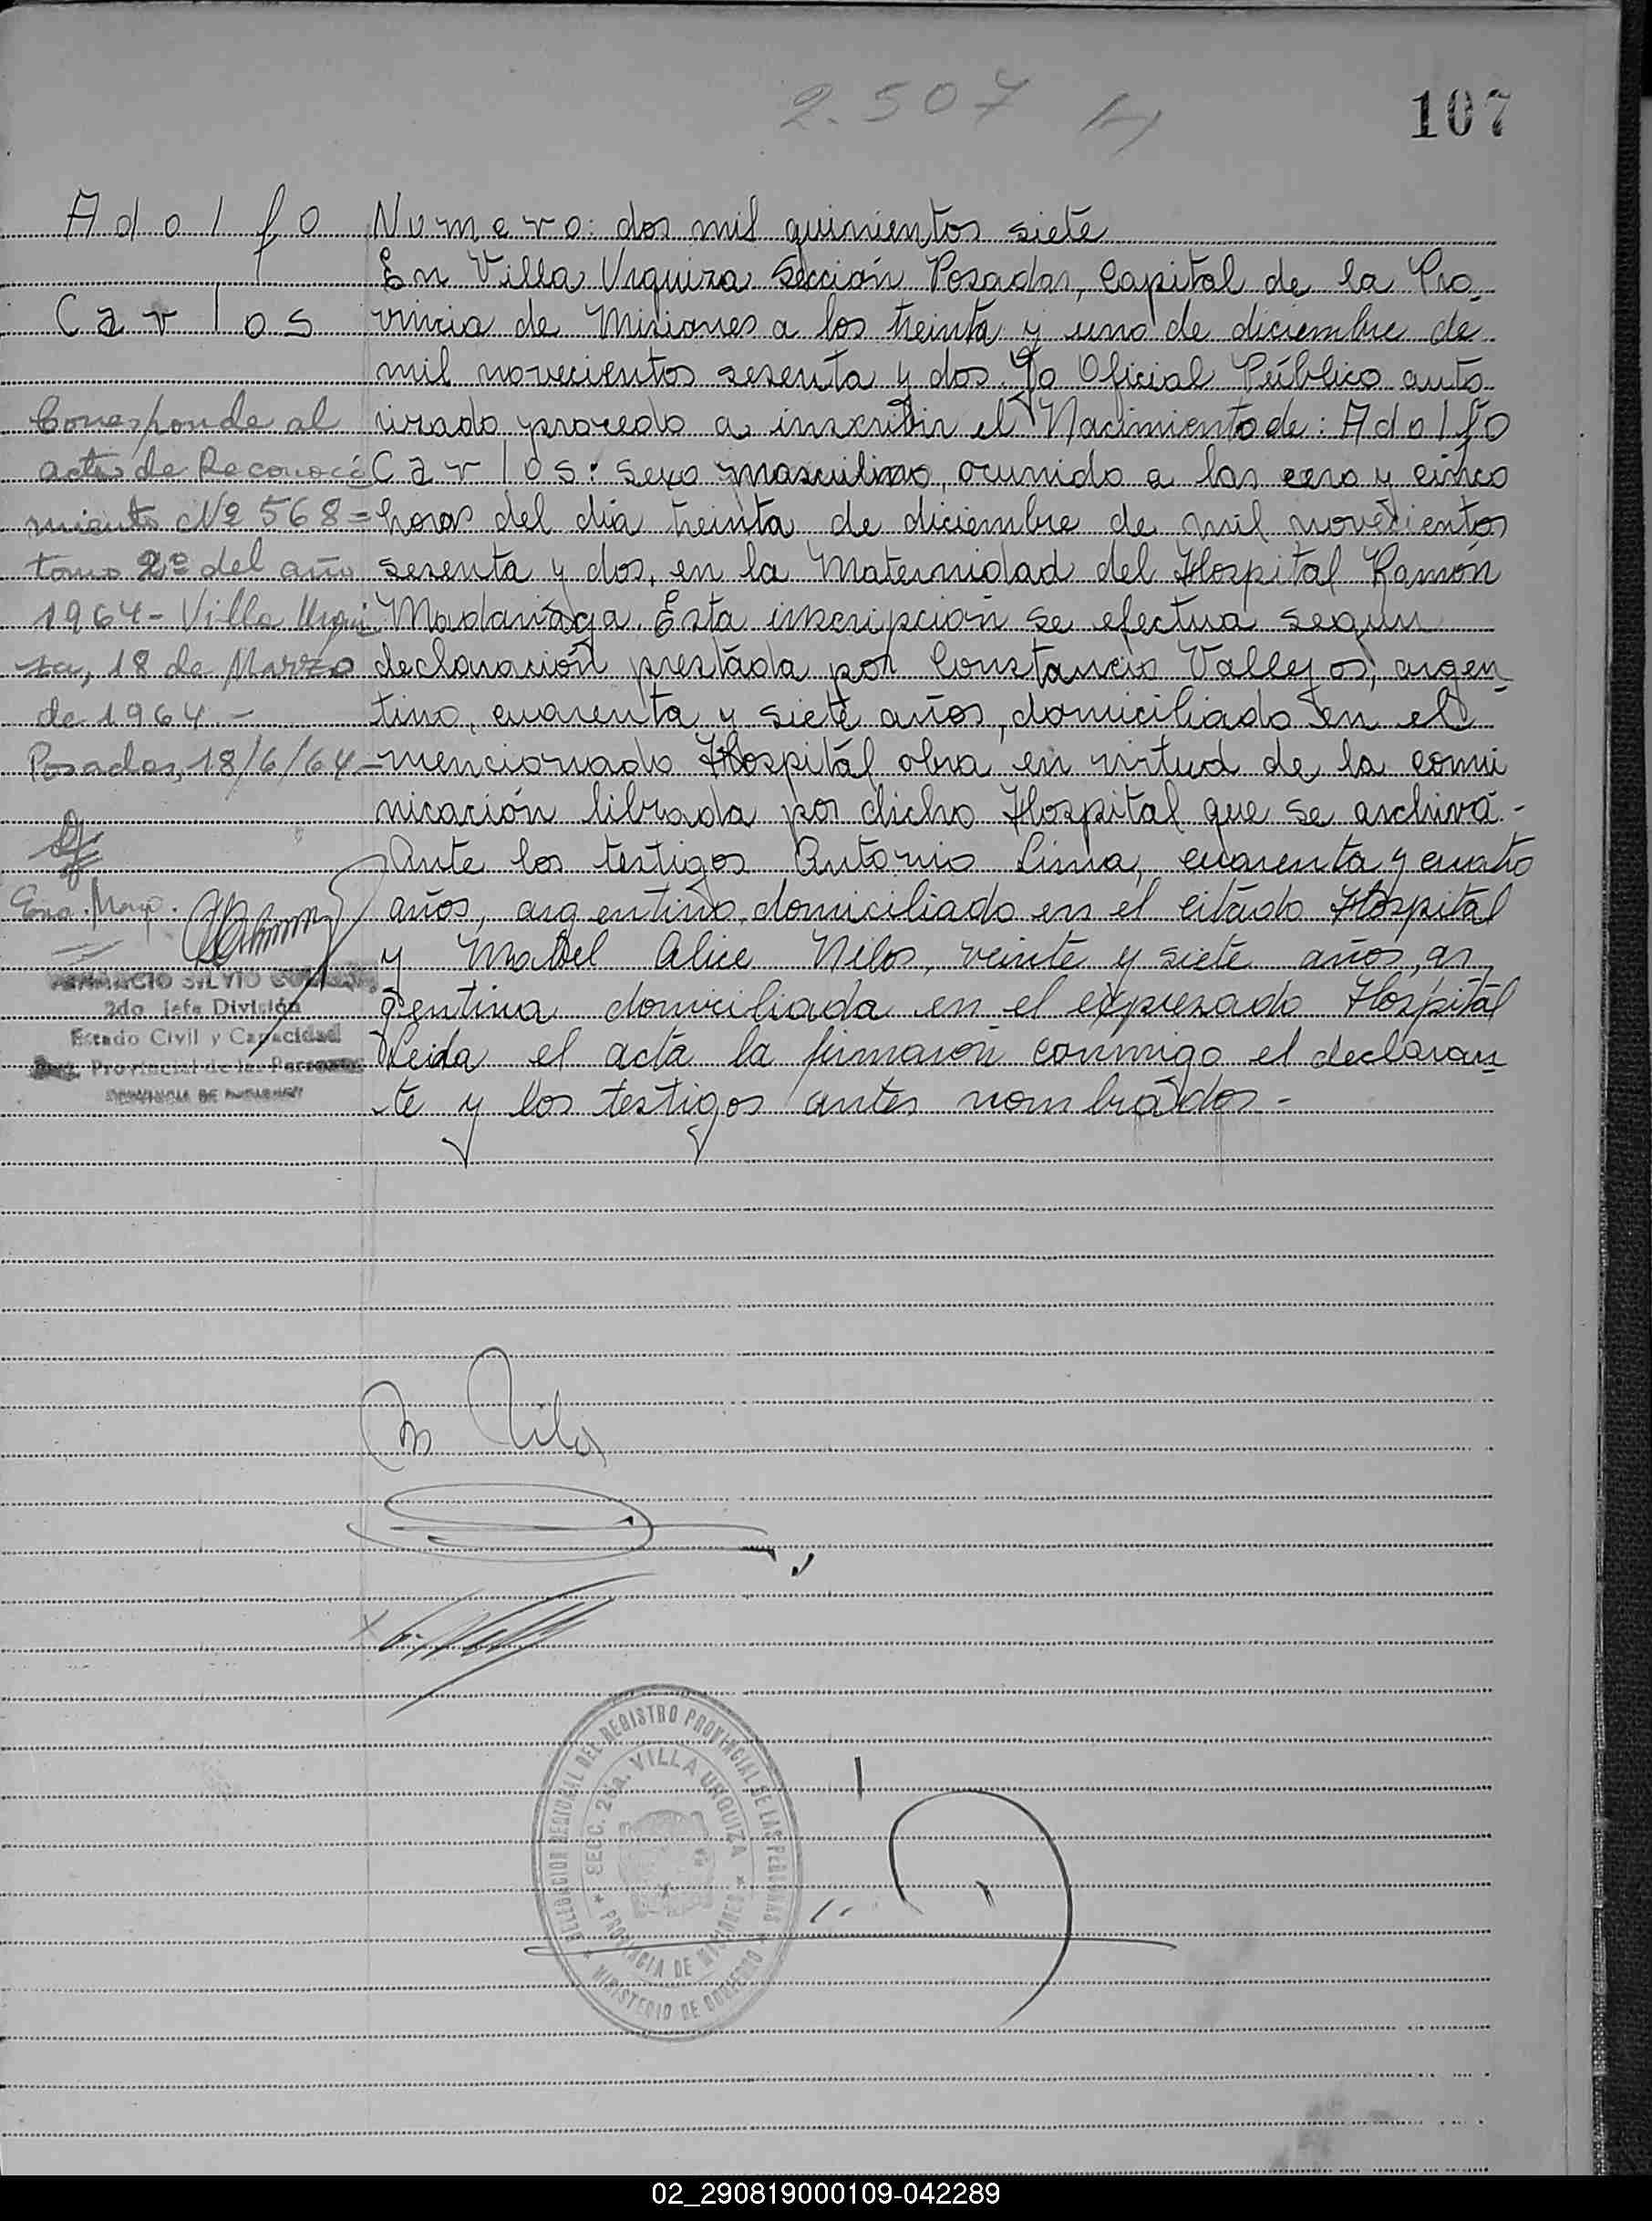 2.507
107
Adolfo
Carlos
Numero: dos mil quinientos siete
En Villa Urquiza Sección Posadas, Capital de la Pro-
vincia de Misiones a los treinta y uno de diciembre de
mil novecientos sesenta y dos. Yo Oficial Público auto
rizado procedo a inscribir el Nacimiento de: Adolfo
Carlos: sexo masculino, ocurrido a las cero y cinco
horas del dia treinta de diciembre de mil novecientos
sesenta y dos, en la Maternidad del Hospital Ramón
Madariaga. Esta inscripción se efectua segun
declaración prestada por Constancio Vallejos, argen-
tino, cuarenta y siete años, domiciliado en el
mencionado Hospital obra en virtud de la comu
nicación librada por dicho Hospital que se archiva.-
Ante los testigos Antonio Lima, cuarenta y cuatro
años, argentino, domiciliado en el citado Hospital
y Mabel Alice Nilos, veinte y siete años, ar-
gentina domiciliada en el expresado Hospital
Leida el acta la firmaron conmigo el declaran
-te y los testigos antes nombrados-
Corresponde al
acta de Reconoci
miento Nº 568=
tomo 2º del año
1964- Villa Urqui
za, 18 de Marzo
de 1964 -
Posadas, 18/6/64-
SILVIO
2do Jefe División
Estado Civil y Capacidad
Provincial de las Personas
PROVINCIA DE MISIONES
M Nilos
DELEGACION REGIONAL DEL REGISTRO PROVINCIAL DE LAS PERSONAS
MINISTERIO DE GOBIERNO
SECC. 2da. VILLA URQUIZA
PROVINCIA DE MISIONES
02_290819000109-042289